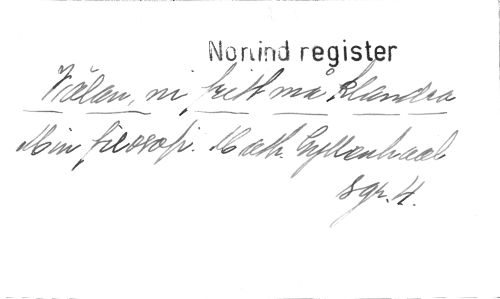 Nortind register
Wålan, ni fritt må klandra
Min filosofi. Math. Gyllenhaal
sgr. 4.